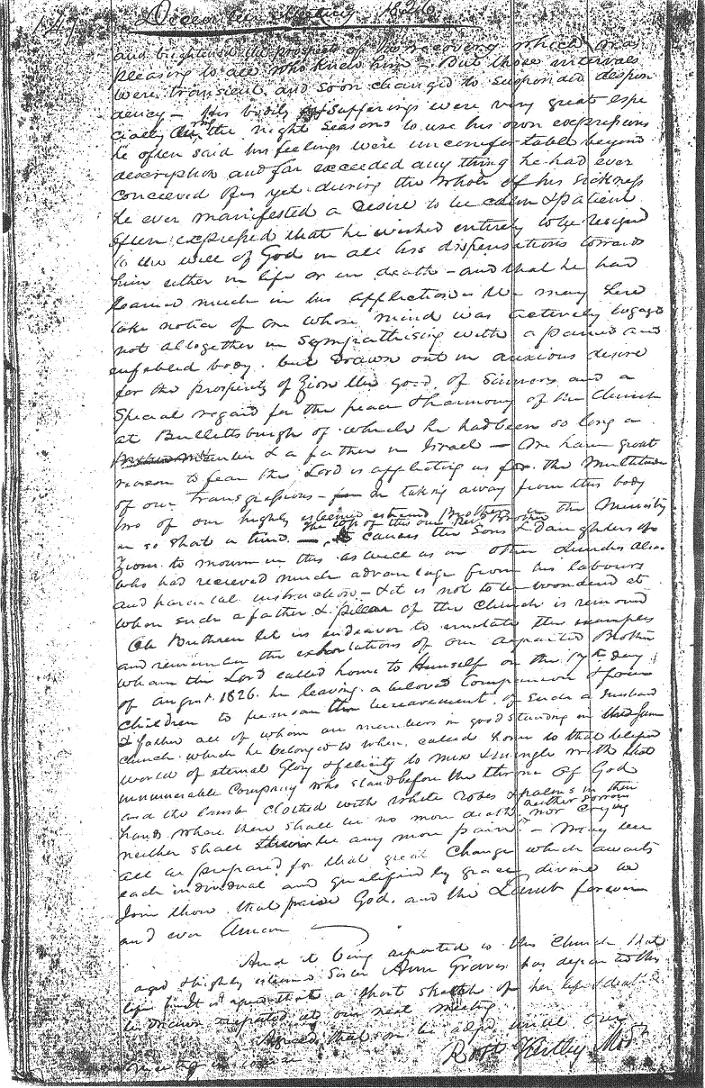 147 December Meeting 1826
and brightened the prospect of his recovery which was
pleasing to all who knew him - But those intervals
were transient, and soon changed to suspended despon
dency - His bodily sufferings were very great espe
cially in the night seasons to use his own expressions
he often said his feelings were uncomfortable beyond
description and far exceeded any thing he had ever
concieved of. yet during the whole of his sickness
he ever manifested a desire to be calm & patient
often expressed that he wished entirely to be resigned
to the will of God in all his dispensations towards
him either in life or in death - and that he had
learned much in his affliction - We may here
take notice of one whose mind was actively engaged
not altogether in sympathising with a pained and
enfeebled body. but drawn out in anxious desire
for the prosperity of Zion the good of Sinners and a
Special regard for the peace & harmony of the Church
at Bullittsburgh of which he had been so long a
member & a father in Israel - We have great
reason to fear the Lord is afflicting us for the multitude
of our transgressions - in taking away from this body
two of our highly esteemed Brothers in the Ministry
in so short a time. - The loss of this our Brother causes the Sons & daughters of
Zion to mourn in this as well as in other Churches also
who had recieved much advantage from his labours
and parental instruction - & it is not to be wondered at
when such a father & pillar of the Church is removed
Oh Brethren let us endeavor to emulate the examples
and remember the exhortations of our departed Brother
whom the Lord called home to Himself on the day
of August 1826. he leaving a beloved Companion & four
children to bemoan the bereavement of such a husband
& father all of whom are members in good standing in the same
church which he belonged to when called home to that blessed
world of eternal Glory & felicity to mix & mingle with that
innumerable Company who stand before the throne of God
and the Lamb clothed with white robes & palms in their
hands where there shall be no more death neither sorrow nor crying
neither shall there be any more pain - May we
all be prepared for that great Change which awaits
each individual and qualified by grace divine to
Join them that praise God. and the Lamb forever
and ever Amen
And it being reported to this Church that
aged & highly esteemed Sister Ann Graves has departed this
life agreed that a short sketch of her life & death
be drawn & reported at our next meeting
Agreed that be until our
meeting in course
Robt Kirtley Modr